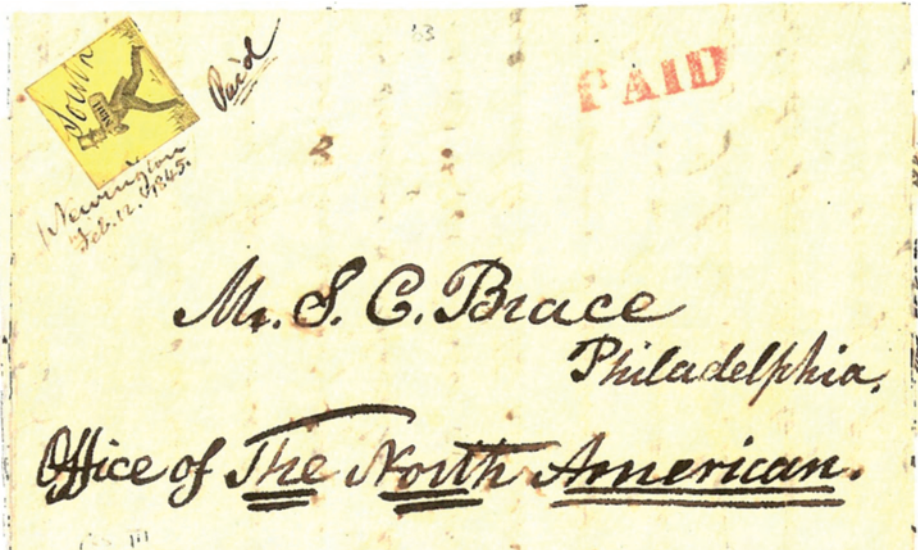 South
Paid
Newington
Feb. 12. 1845.
PAID
Mr. S. C. Brace
Philadelphia.
Office of The North American.